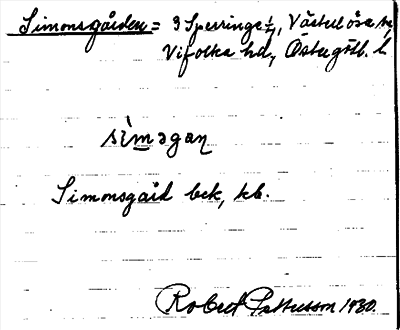 Simonsgården = 3 Sperringe 1/4, Västerlösa sn,
Vifolka hd, Östergötl. l.
sìməgaɲ
Simonsgård bek, kb.
Robert Pettersson 1930.